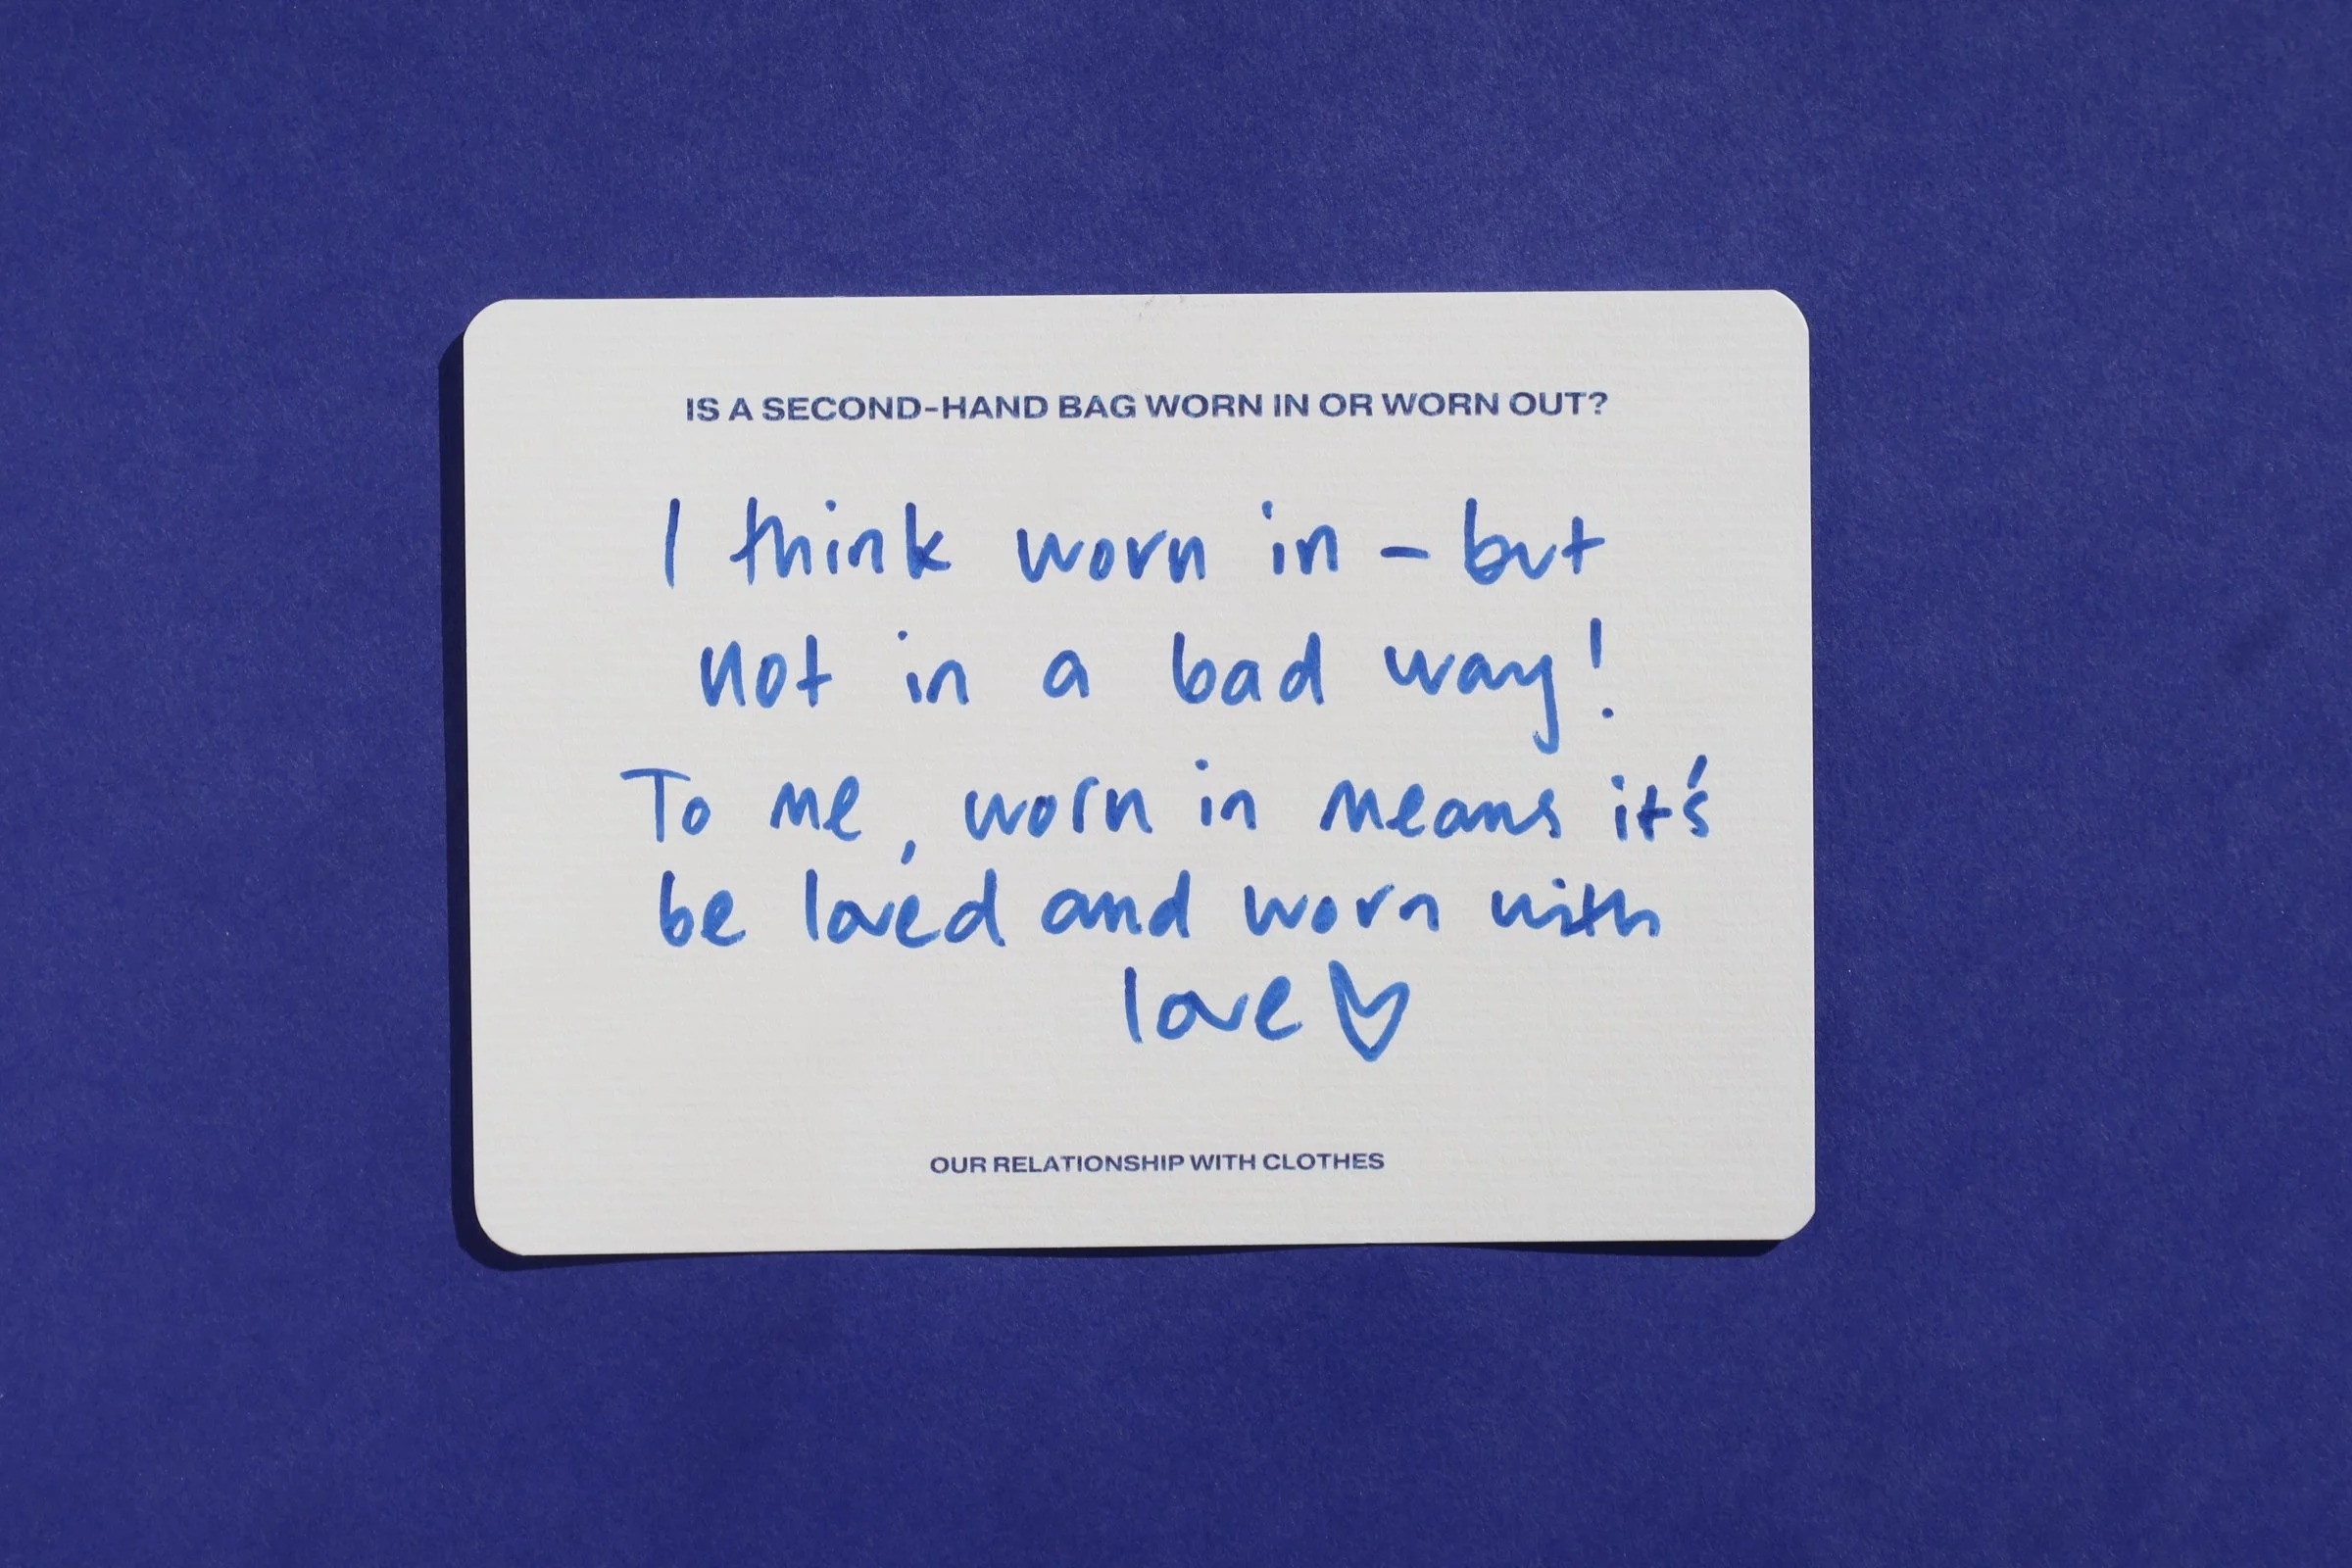 IS A SECOND-HAND BAG WORN IN OR WORN OUT?
I think worn in - but
not in a bad way!
To me, worn in means it's
be loved and worn with
love ♡
OUR RELATIONSHIP WITH CLOTHES